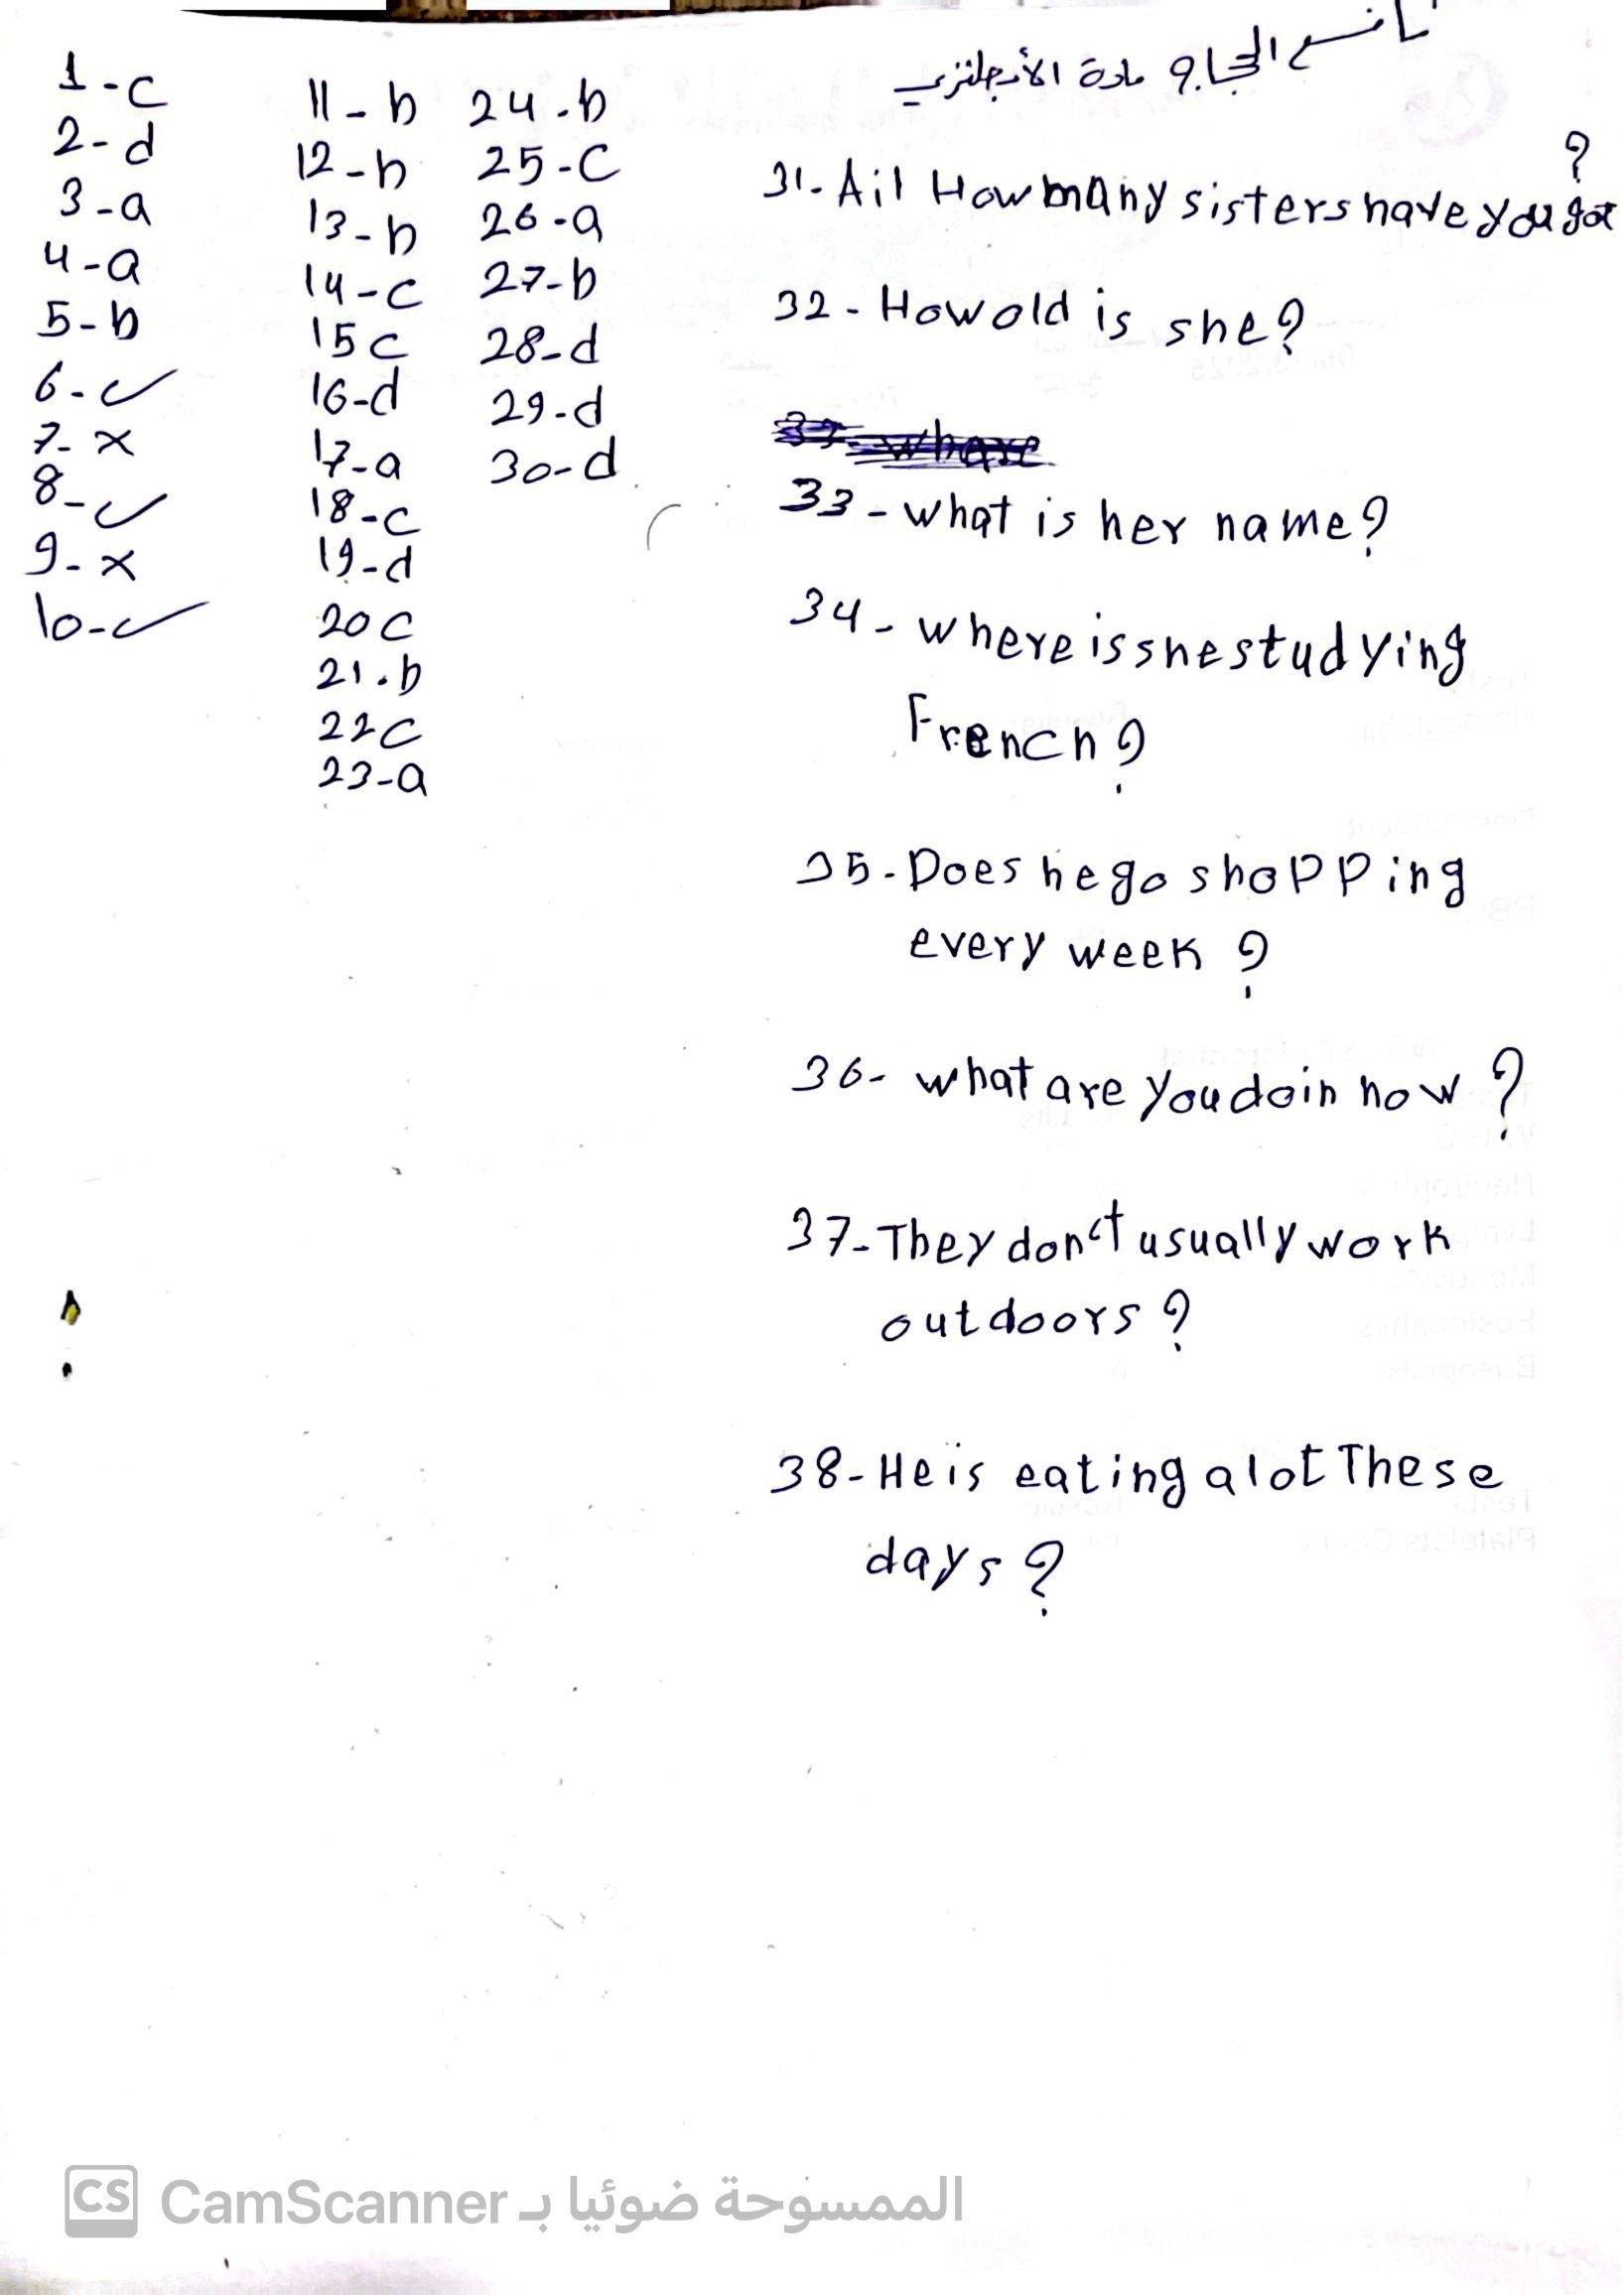 مادة الأنجلتزي
1-c
2-d
3-a
4-a
5-b
6-✓
7-x
8-✓
9-x
10-✓
11-b
12-b
13-b
14-c
15c
16-d
17-a
18-c
19-d
20c
21.b
22c
23-a
24.b
25-C
26-a
27-b
28-d
29-d
30-d
31-Ail How many sisters have you got?
32-How old is she?
33-what is her name?
34-where is she studying
French?
35-Does he go shopping
every week?
36-what are you doin now?
37-They don't usually work
outdoors?
38-He is eating a lot These
days?
CS CamScanner الممسوحة ضوئيا بـ